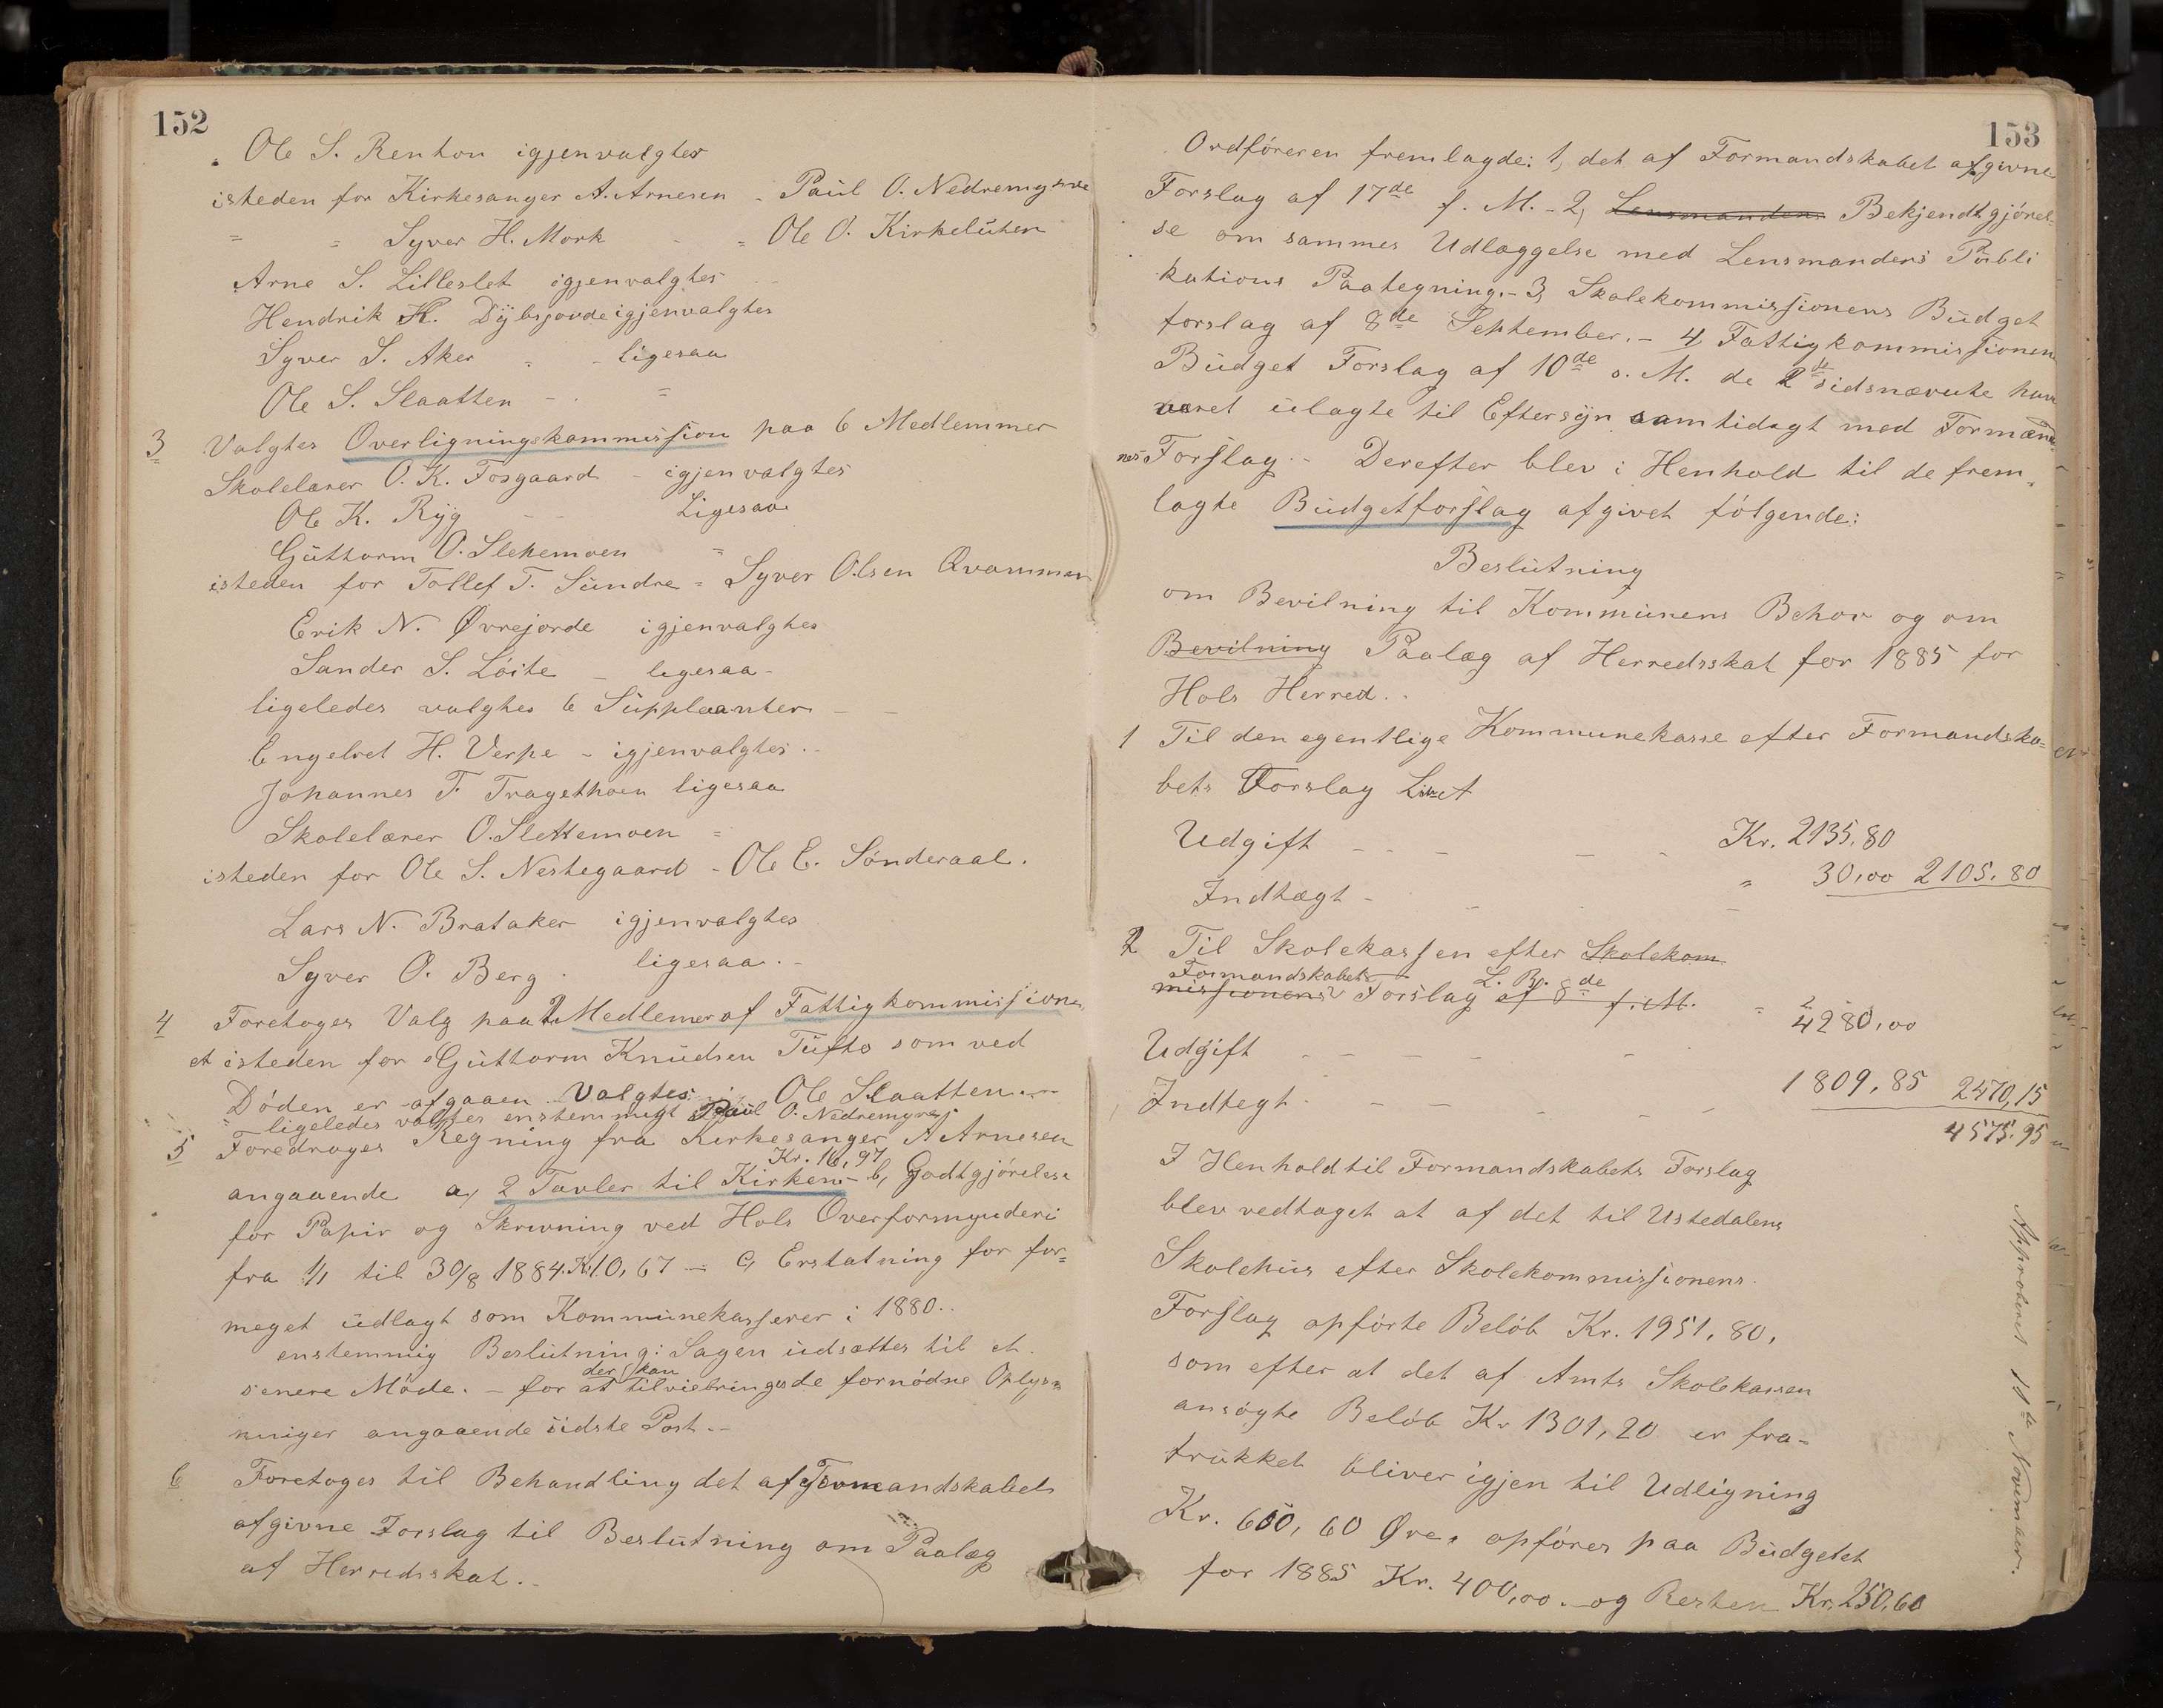 152
Ole S. Renton igjenvalgtes
isteden for Kirkesanger A. Arnesen - Paul O. Nedremyrne
" " Syver H. Mork - " Ole O. Kirkeluten
Arne S. Lilleslet igjenvalgtes
Hendrik H. Dybsjorde igjenvalgtes
Syver S. Aker - - ligesaa
Ole S. Slaatten - . "
3 Valgtes Overligningskommission paa 6 Medlemmer
Skolelærer O. K. Fosgaard - igjenvalgtes
Ole K. Ryg - - Ligesaa
Guttorm O. Slettemoen "
isteden for Tollef T. Sundre = Syver Olsen Qvammen
Erik N. Øvrejorde igjenvalgtes
Sander S. Löite - ligesaa -
ligeledes valgtes 6 Suppleanter - -
Engebret H. Verpe - igjenvalgtes . -
Johannes T. Tragethoen ligesaa
Skolelærer O. Slettemoen "
isteden for Ole S. Nestegaard - Ole E. Sönderaal.
Lars N. Brataker igjenvalgtes
Syver O. Berg . ligesaa . -
4 Foretoges Valg paa 2 Medlemer af Fattigkommissionen,
et isteden for Guttorm Knudsen Tufto som ved
Döden er afgaaen. Valgtes: Ole Slaatten
ligeledes valgtes enstemmigt Paul O. Nedremyrne
5 Foredroges Regning fra Kirkesanger A Arnesen
Kr. 16,97
angaaende a, 2 Tavler til Kirken - b, Godtgjörelse
for Papir og Skrivning ved Hols Overformynderi
fra 1/1 til 30/8 1884. Kr. 10,67 - c, Erstatning for for=
meget udlagt som Kommunekasserer i 1880. .
enstemmig Beslutning: Sagen udsættes til et
der kan
senere Möde. - for at tilveiebringes de fornödne Oplys=
ninger angaaende sidste Post. -
6 Foretoges til Behandling det af Formandskabet
afgivne Forslag til Beslutning om Paalæg
af Herredsskat. -
153
Ordföreren fremlagde: 1, det af Formandskabet afgivne
Forslag af 17de f. M. - 2, Lensmandens Bekjendtgjörel-
se om sammes Udlæggelse med Lensmandens Publi
kations Paategning. - 3, Skolekommissionens Budget
forslag af 8de September. - 4, Fattigkommissionens
Budget Forslag af 10de s. M. de 2de sidsnævnte have
været ulagte til Eftersyn samtidigt med Formænd
nes Forslag. - Derefter blev i Henhold til de frem=
lagte Budgetforslag afgivet fölgende:
Beslutning
om Bevilning til Kommunens Behov og om
Bevilning Paalæg af Herredsskat for 1885 for
Hols Herred. .
1 Til den egentlige Kommunekasse efter Formandska=
bets Forslag Litr A
Udgift - - - - - Kr. 2135,80
Indtægt - - - - " 30,00 2105,80
2 Til Skolekassen efter Skolekom
Formandskabets L. B.
missionens Forslag af 8de f. M.
Udgift - - - - - - " 4280,00
Indtegt - - - - - 1809,85 2470,15
4575,95
I Henhold til Formandskabets Forslag
blev vedtaget at af det til Ustedalens
Skolehus efter Skolekommissionens
Forslag opförte Belöb Kr. 1951,80,
som efter at det af Amts Skolekassen
ansögte Belöb Kr 1301,20 er fra=
trukket bliver igjen til Udligning
Kr. 650,60 Øre. opföres paa Budgetet
for 1885 Kr. 400,00. og Resten Kr. 250,60
Approberet 11te November.